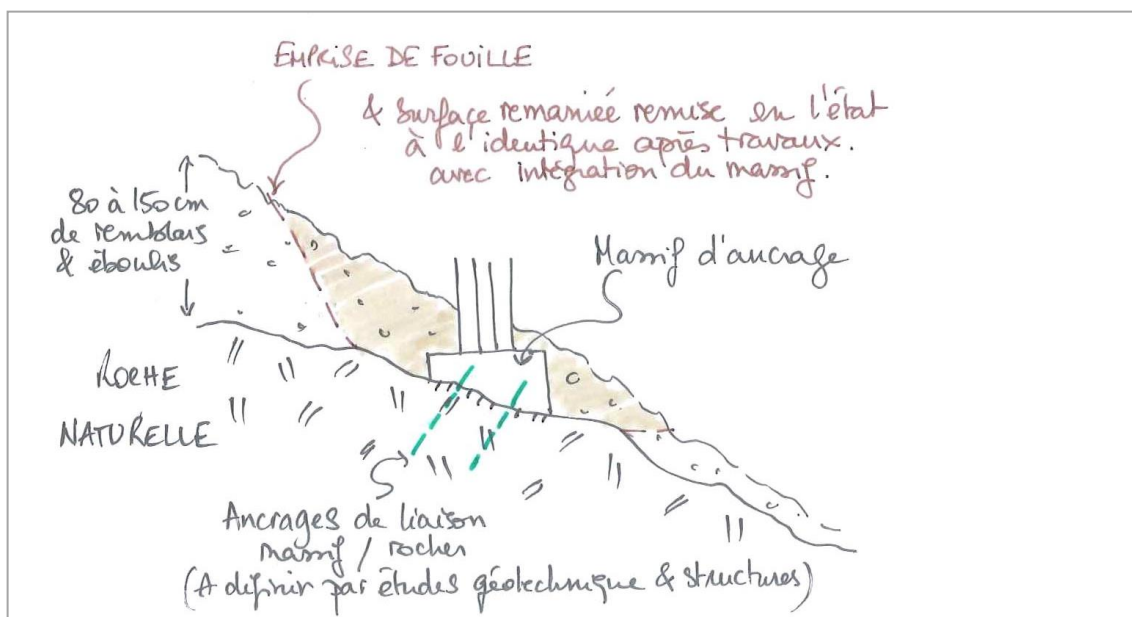 EMPRISE DE FOUILLE
& surface remaniée remise en l'état
à l'identique après travaux.
avec intégration du massif.
80 à 150 cm
de remblais
& éboulis
Massif d'ancrage
ROCHE
NATURELLE
Ancrages de liaison
massif / rocher
(A définir par études géotechnique & structures)